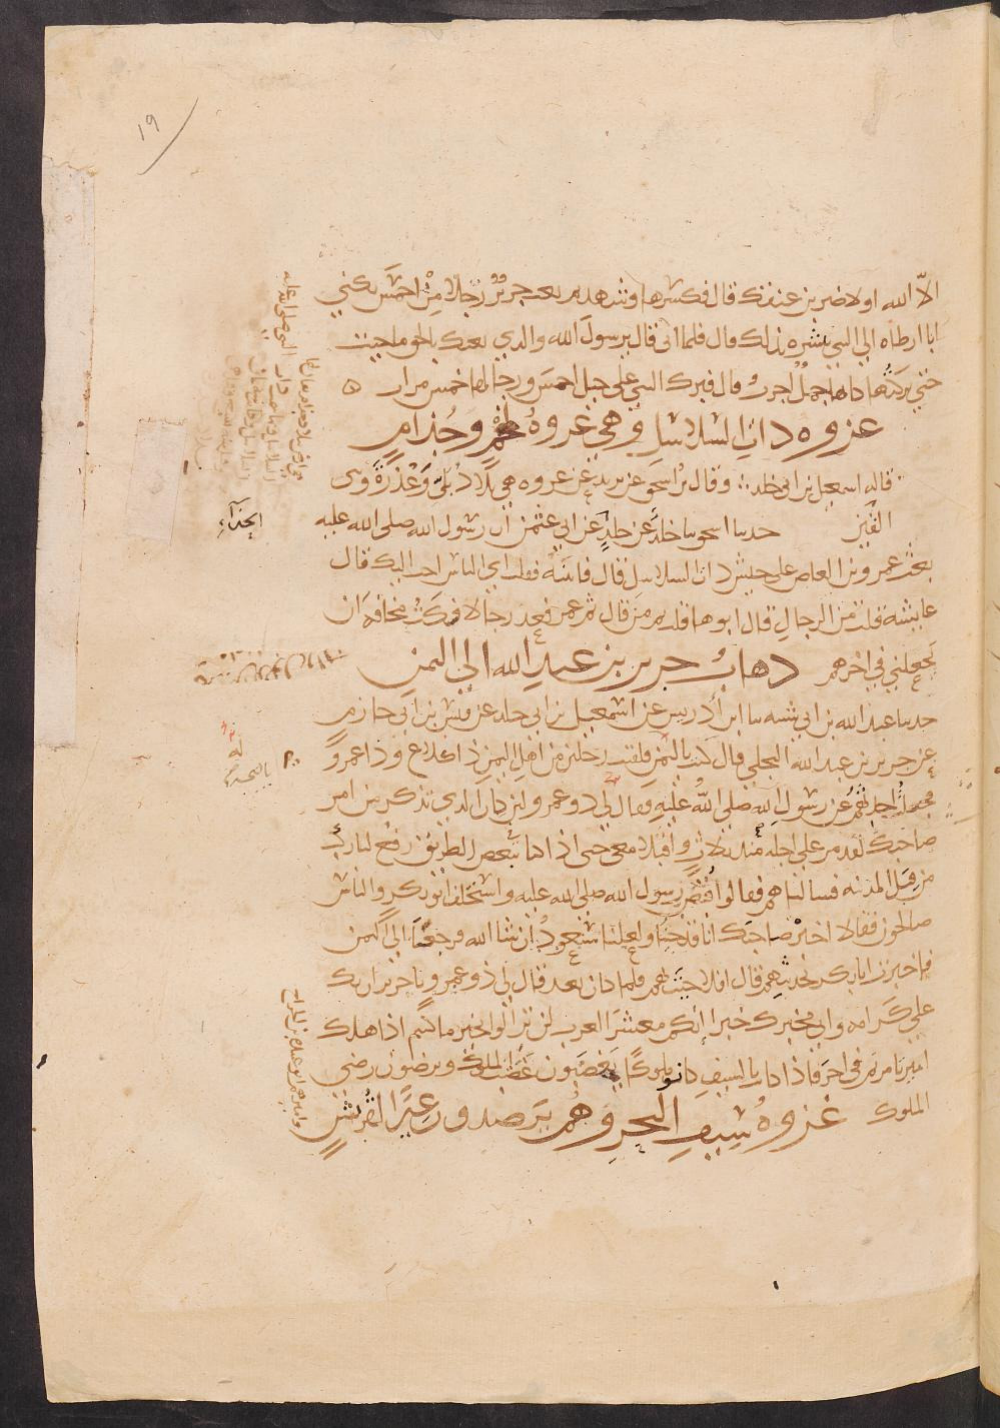 ١٩
الا الله او لاضربن عنقك قال فكسرها وشهد ثم بعث جرير رجلا من احمس يكنى
ابا ارطاه الى النبي يبشره بذلك قال فلما اتى قال يرسول الله والذي بعثك بالحق ما جيت
حتى تركتها كانها جمل اجرب قال فبرك النبي على خيل احمس ورجالها خمس مرار
غزوه ذات السلاسل وهي غزوة لخم وجذام
قاله اسمعيل بن ابي خلد وقال بن اسحق عن يزيد عن عروه هي بلاد بلي وعذرة وبني
القين حدثنا اسحق نا خلد عن خلد عن ابي عثمن ان رسول الله صلى الله عليه
بعث عمرو بن العاص على جيش ذات السلاسل قال فاتيته فقلت اي الناس احب اليك قال
عايشه قلت من الرجال قال ابوها قلت ثم من قال ثم عمر فعد رجالا فسكت مخافه ان
يجعلني في اخرهم ذهاب جرير بن عبد الله الى اليمن
حدثنا عبد الله بن ابي شيبه نا ابن ادريس عن اسمعيل بن ابي خلد عن قيس بن ابي حازم
عن جرير بن عبد الله البجلي قال كنت باليمن فلقيت رجلين من اهل اليمن ذا كلاع وذا عمرو
فجعلت احدثهم عن رسول الله صلى الله عليه فقال لي ذو عمرو لئن كان الذي تذكر من امر
صاحبك لقد مر على اجله منذ ثلاث واقبلا معي حتى اذا كنا ببعض الطريق رفع لنا ركب
من قبل المدينه فسالناهم فقالوا قبض رسول الله صلى الله عليه واستخلف ابو بكر والناس
صالحون فقالا اخبر صاحبك انا قد جينا ولعلنا سنعود ان شا الله ورجعا الى اليمن
فاخبرت ابا بكر بحديثهم قال افلا جيت بهم فلما كان بعد قال لي ذو عمرو يا جرير ان بك
علي كرامه واني مخبرك خبرا انكم معشر العرب لن تزالوا بخير ما كنتم اذا هلك
امير تامرتم في اخر فاذا كانت بالسيف كانوا ملوكا يغضبون غضب الملوك ويرضون رضى
الملوك غزوه سيف البحر وهم يترصدون عيرا لقريش